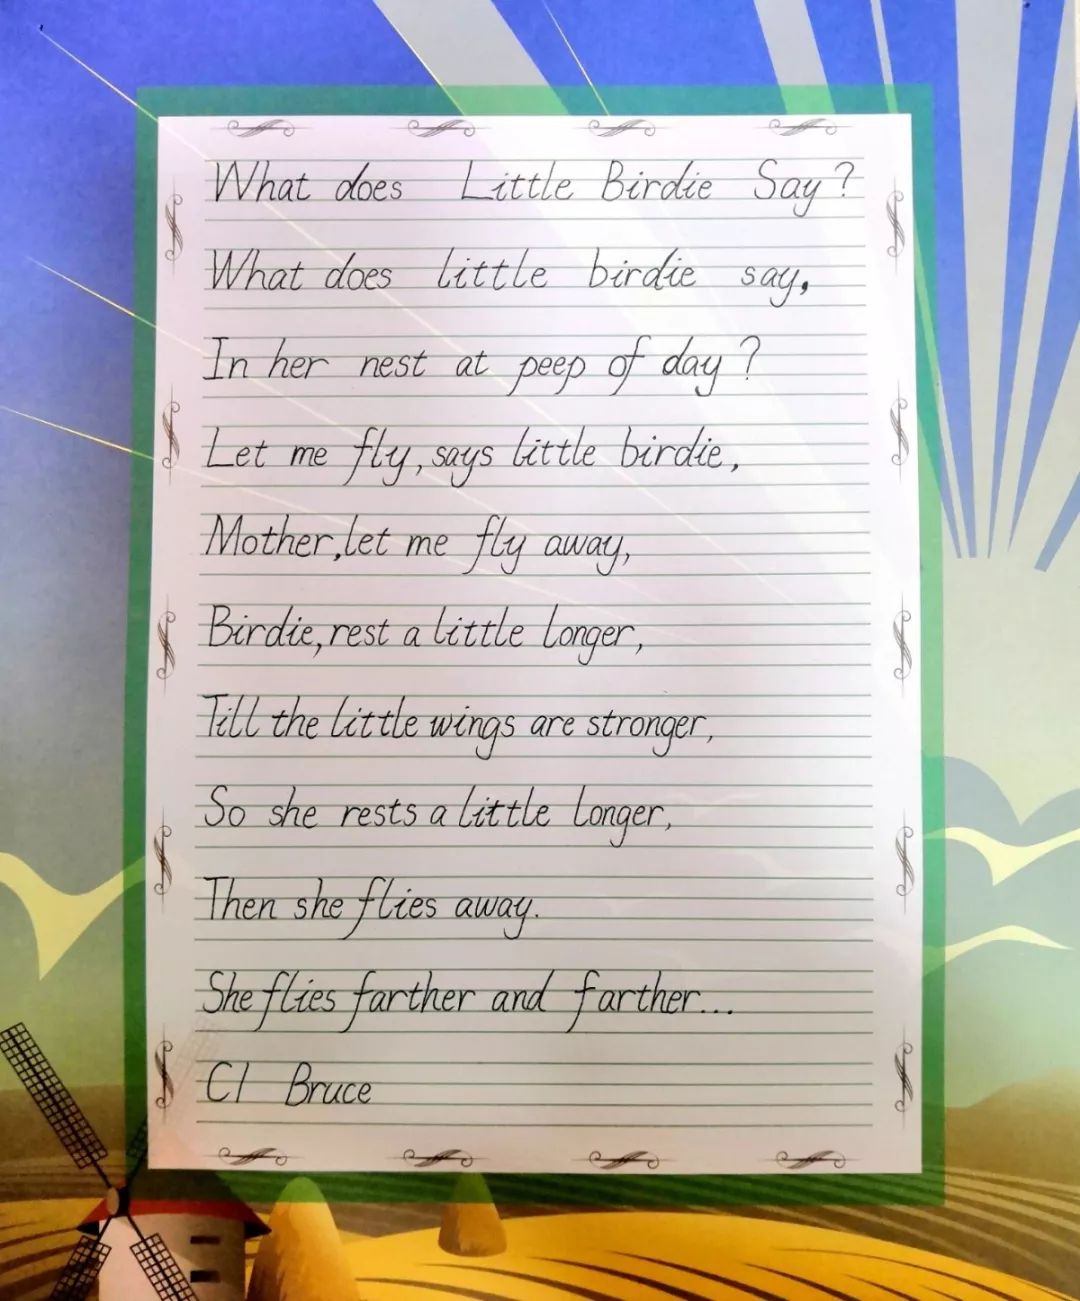 What does Little Birdie Say?
What does little birdie say,
In her nest at peep of day?
Let me fly, says little birdie,
Mother, let me fly away,
Birdie, rest a little longer,
Till the little wings are stronger,
So she rests a little longer,
Then she flies away.
She flies farther and farther...
C1 Bruce